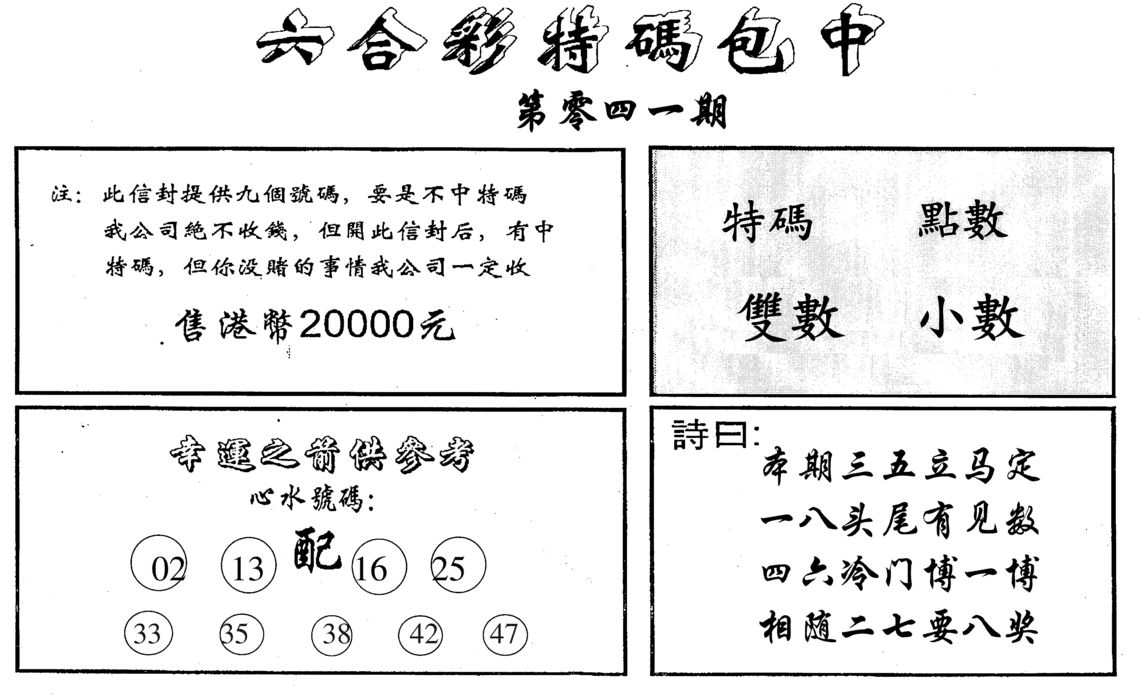 六合彩特碼包中
第零四一期
注：此信封提供九個號碼，要是不中特碼
我公司絶不收錢，但開此信封后，有中
特碼，但你没賭的事情我公司一定收
售港幣20000元
特碼 點數
雙數 小數
幸運之箭供參考
心水號碼：
02 13 配 16 25
33 35 38 42 47
詩曰：
本期三五立马定
一八头尾有见数
四六冷门博一博
相随二七要八奖